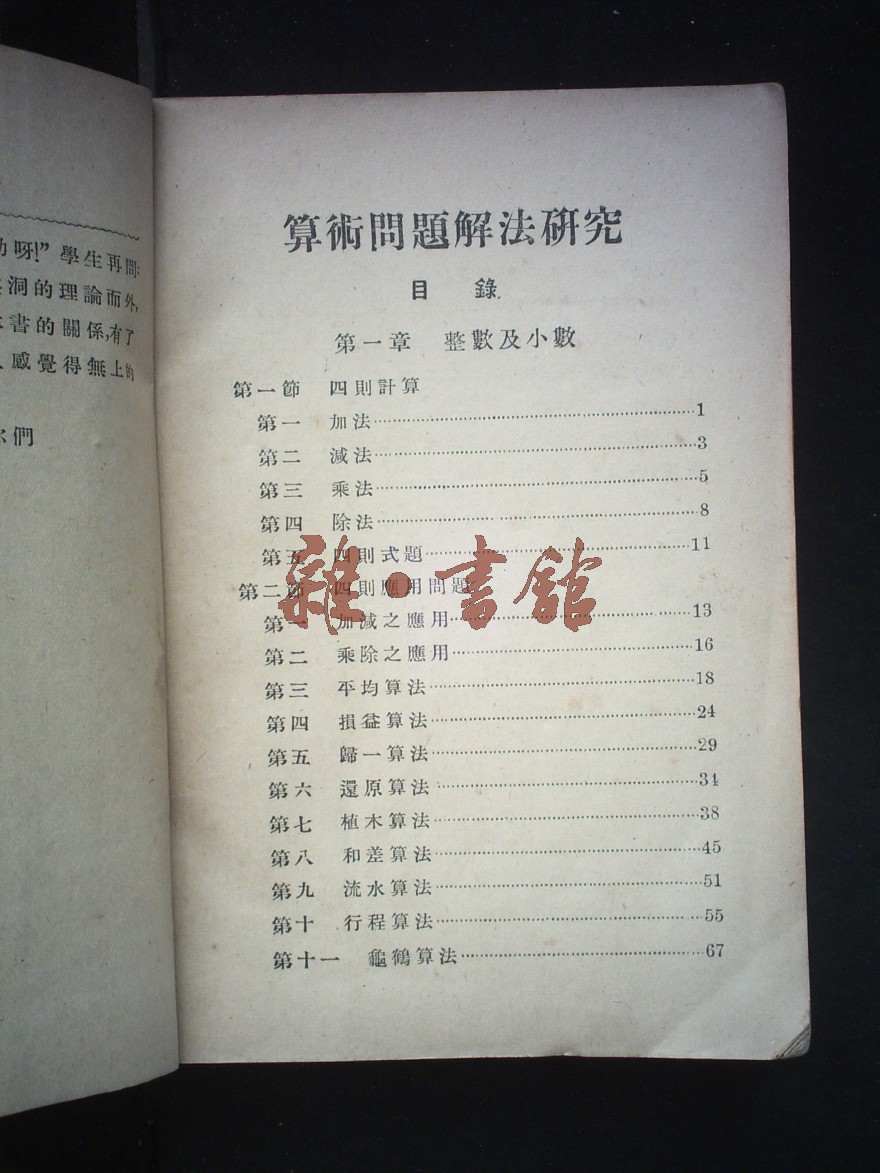 呀!”學生再問:
洞的理論而外,
書的關係,有了
感覺得無上的
們
算術問題解法研究
目 錄
第一章 整數及小數
第一節 四則計算
第一 加法……1
第二 減法……3
第三 乘法……5
第四 除法……8
第五 四則式題……11
第二節 四則應用問題
第一 加減之應用……13
第二 乘除之應用……16
第三 平均算法……18
第四 損益算法……24
第五 歸一算法……29
第六 還原算法……34
第七 植木算法……38
第八 和差算法……45
第九 流水算法……51
第十 行程算法……55
第十一 龜鶴算法……67
雜·書館